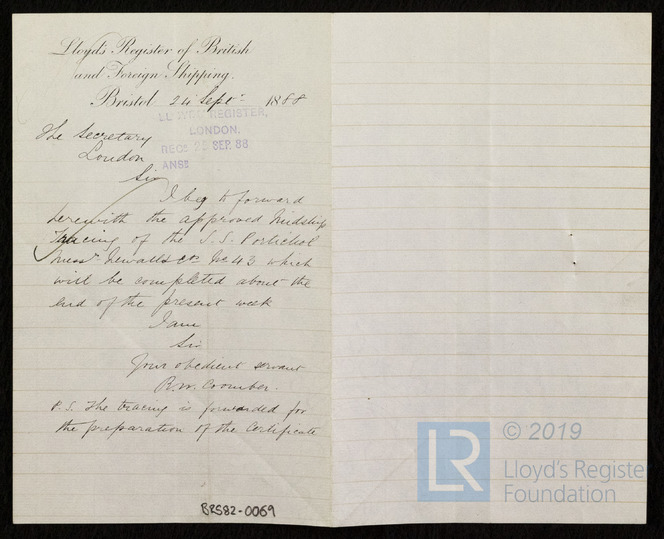 Lloyd's Register of British
and Foreign Shipping.
Bristol 24 Sept 1888
LLOYD'S REGISTER,
LONDON.
REC'D 25 SEP. 88
ANSD
The Secretary
London
Sir
I beg to forward
herewith the approved Midship
Tracing of the S.S. Portichol
Messrs No 43 which
will be completed about the
end of the present week
I am
Sir
Your obedient servant
R.W. Coomber.
P.S. The tracing is forwarded for
the preparation of the Certificate
BRS82-0069
LR
© 2019
Lloyd's Register
Foundation